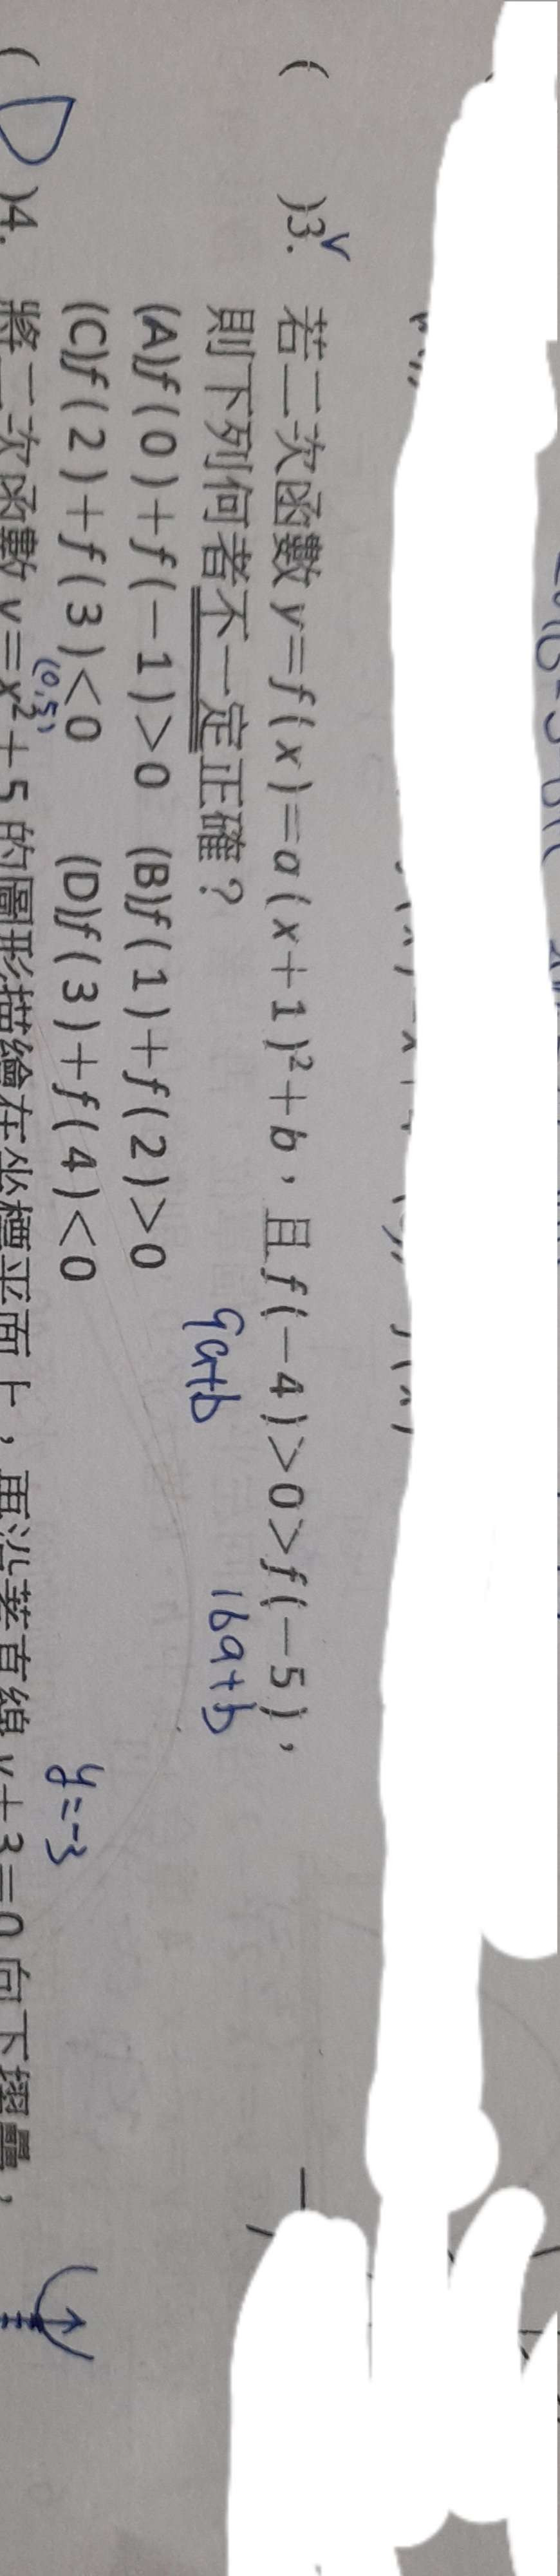 ( )3. 若二次函數 y=f(x)=a(x+1)²+b，且 f(-4)>0>f(-5)，
9a+b 16a+b
則下列何者不一定正確？
(A)f(0)+f(-1)>0 (B)f(1)+f(2)>0
(C)f(2)+f(3)<0 (D)f(3)+f(4)<0
(0,5) y=-3
(D)4. 將二次函數 y=x²+5 的圖形描繪在坐標平面上，再沿著直線 y+3=0 向下摺疊，